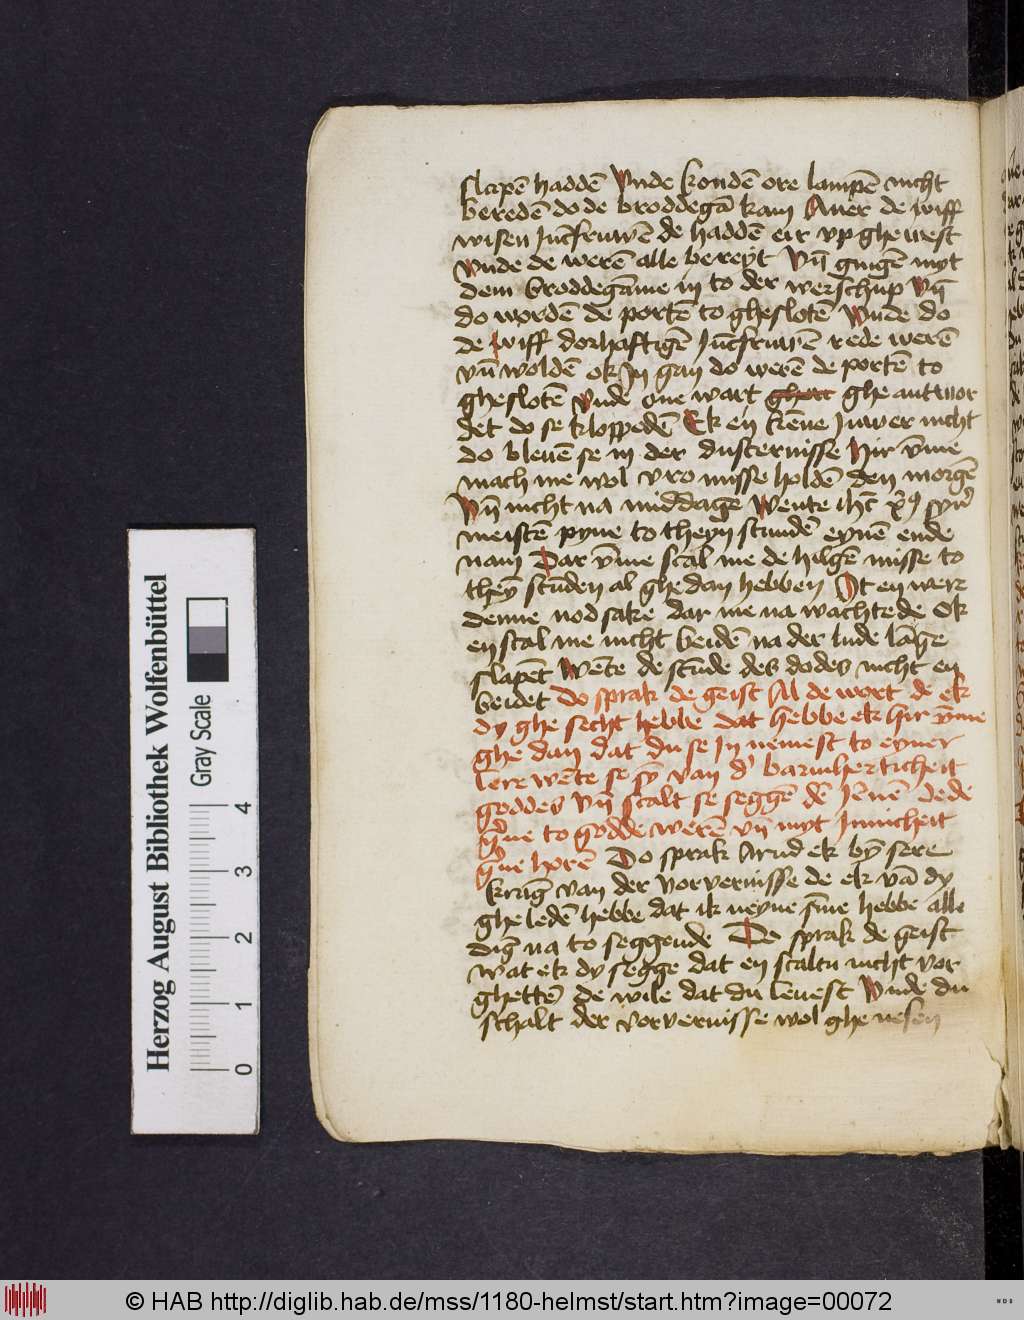 slapē haddē Vnde kondē ore lampē nicht
beredē do de broddegā kam Auer de wiff
wisen Jūcfruwē de haddē eir vp ghe uest
vnde de werē alle bereyt Vn̄ gingē myt
dem broddegāme in to der werschup vn̄
do wordē de portē to gheslotē Vnde do
de wiff dorhaftigē Jūcfruwē rede werē
vn̄ woldē ok In gan do werē de portē to
gheslotē vnde one wart ghe antwor
det do se kloppedē Ek en kēne Juwer nicht
do bleuē se in der dusternisse Hir v̄me
mach me wol vro misse holdē den morgē
Vn̄ nicht na middage Wente ihc̄ synē
meistē pyne to theyn stundē eynē ende
nam Dar v̄me scal me de hilgē misse to
theȳ stūden al ghe dan hebben It en were
denne nodsake dar me na wachtede Ok
en scal me nicht beidē na der lude lāge
slapēt Wēte de stūde des dodes nicht en
beidet Do sprak de geist Al de wort de ek
dy ghe secht hebbe dat hebbe ek hir v̄me
ghe dan dat du se In nemest to eyner
lere wēte se sȳ van d' barmherticheit
goddes Vn̄ scalt se seggē dē Jēnē de de
gērne to godde werē vn̄ myt Innicheit
gērne horē Do sprak Arnd ek bȳ sere
krāg van der vorvernisse de ek vā dy
ghe ledē hebbe dat ik neyne sȳme hebbe alle
dīg na to seggende Do sprak de geist
wat ek dy segge dat en scaltu nicht vor
ghettē de wile dat du leuest Vnde du
schalt der vorvernisse wol ghe nesen
Herzog August Bibliothek Wolfenbüttel
Gray Scale
0 1 2 3 4
© HAB http://diglib.hab.de/mss/1180-helmst/start.htm?image=00072